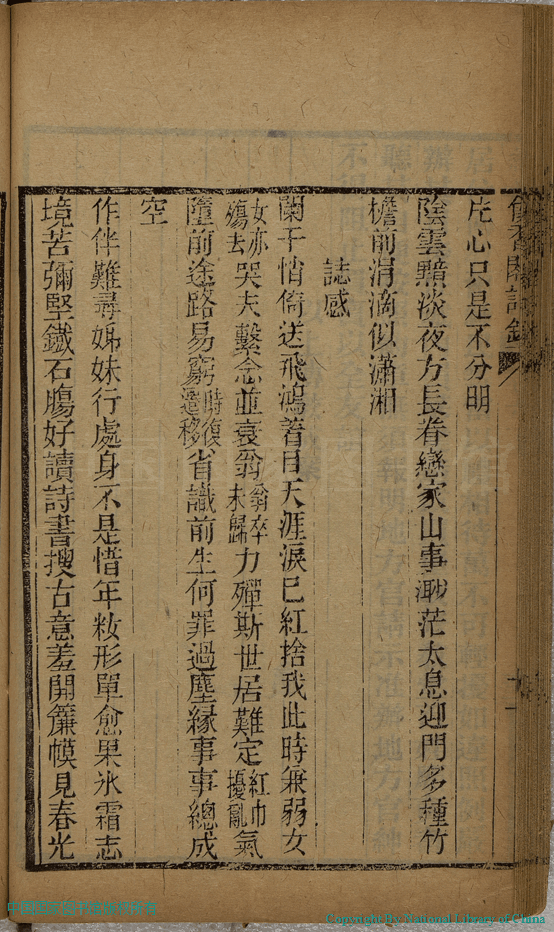 片心只是不分明
陰雲黯淡夜方長眷戀家山事渺茫太息迎門多種竹
檐前涓滴似瀟湘
誌感
闌干悄倚送飛鴻着目天涯淚已紅捨我此時兼弱女
女亦殤去哭夫繫念並衰翁翁卒未歸力殫斯世居難定紅巾擾亂氣
墮前途路易窮時復遷移省識前生何罪過塵緣事事總成
空
作伴難尋姊妹行處身不是惜年籹形單愈果氷霜志
境苦彌堅鐵石腸好讀詩書搜古意羞開簾幙見春光
Copyright By National Library of China